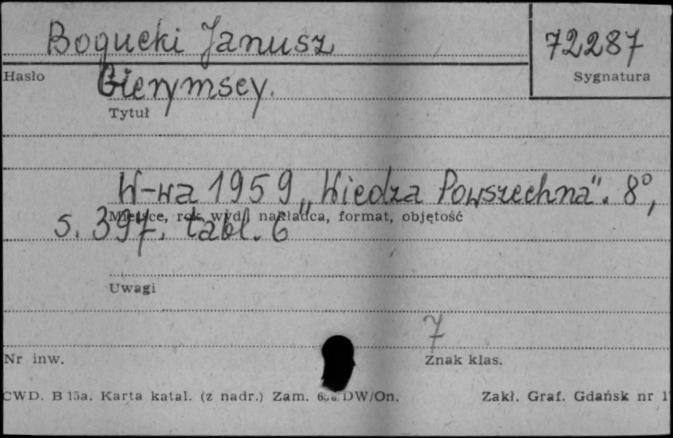 Bogucki Janusz
72287
Hasło
Sygnatura
Gierymscy.
Tytuł
W-wa 1959 „Wiedza Powszechna". 8°,
Miejsce, rok wyd., nakładca, format, objętość
s. 397, tabl. 6
Uwagi
7
Nr inw.
Znak klas.
CWD. B 15a. Karta katal. (z nadr.) Zam. DW/On.
Zakł. Graf. Gdańsk nr